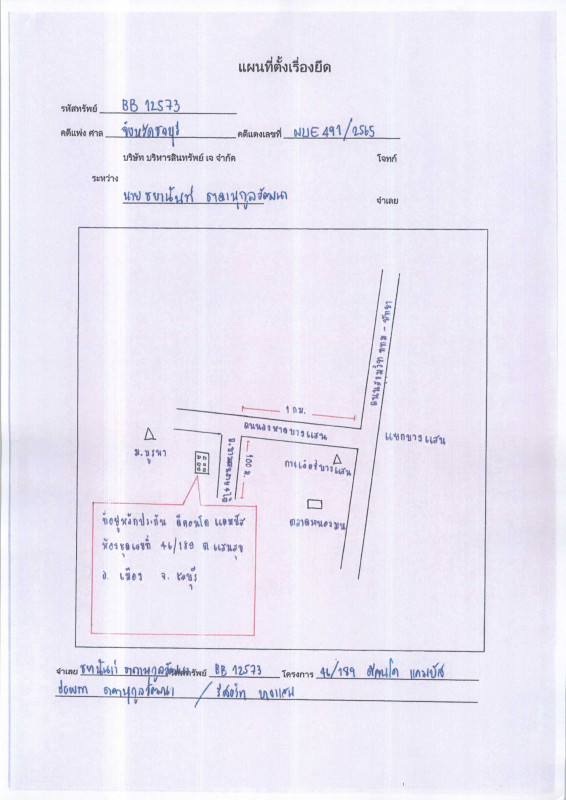 แผนที่ตั้งเรื่องยึด
รหัสทรัพย์ BB 12573
คดีแพ่ง ศาล จังหวัดชลบุรี คดีแดงเลขที่ ผบE 491/2565
บริษัท บริหารสินทรัพย์ เจ จำกัด โจทก์
ระหว่าง
นาย ธนานันท์ ตาลานุกูลวัฒนา จำเลย
ถนนสุขุมวิท
1 กม.
ถนนลงหาดบางแสน
แยกบางแสน
ม.บูรพา
100 ม.
บางแสน
ตลาดหนองมน
ที่อยู่หลักประกัน ดีคอนโด แคมปัส
ห้องชุดเลขที่ 46/189 ต แสนสุข
อ. เมือง จ. ชลบุรี
จำเลย รหัสทรัพย์ BB 12573 โครงการ 46/189 ดีคอนโด แคมปัส
/ รีสอร์ท บางแสน